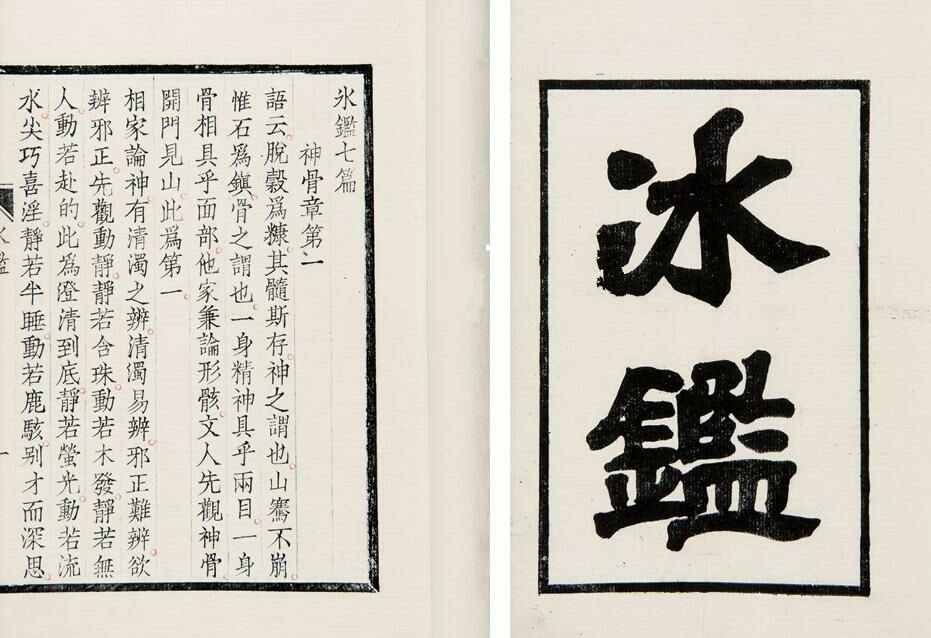 冰鑑
氷鑑七篇
神骨章第一
語云脫穀爲糠其髓斯存神之謂也山騫不崩
惟石爲鎭骨之謂也一身精神具乎兩目一身
骨相具乎面部他家兼論形骸文人先觀神骨
開門見山此爲第一
相家論神有清濁之辨清濁易辨邪正難辨欲
辨邪正先觀動靜靜若含珠動若木發靜若無
人動若赴的此爲澄清到底靜若螢光動若流
水尖巧喜淫靜若半睡動若鹿駭别才而深思